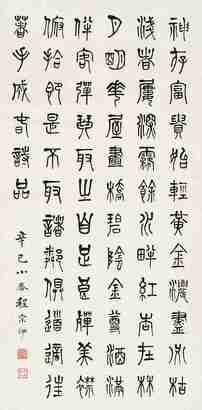 神存富貴始輕黃金濃盡必枯
淺者屢深霧餘水畔紅杏在林
月明華屋畫橋碧陰金尊酒滿
伴客彈琴取之自足良殫美襟
俯拾即是不取諸鄰俱道適往
著手成春詩品
辛巳小春程宗伊